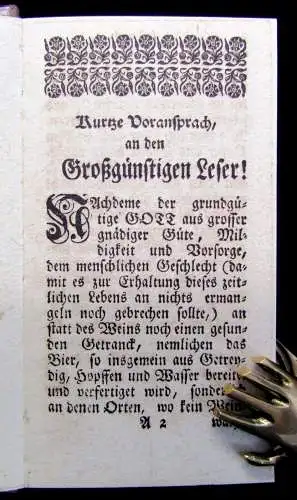 Kurtze Voransprach,
an den
Großgünstigen Leser!
NAchdeme der grundgü-
tige GOTT aus grosser
gnädiger Güte, Mil-
digkeit und Vorsorge,
dem menschlichen Geschlecht (da-
mit es zur Erhaltung dieses zeit-
lichen Lebens an nichts erman-
geln noch gebrechen sollte,) an
statt des Weins noch einen gesun-
den Getranck, nemlichen das
Bier, so insgemein aus Getrey-
dig, Hopffen und Wasser bereit
und verfertiget wird,
an denen Orten, wo kein
A 2